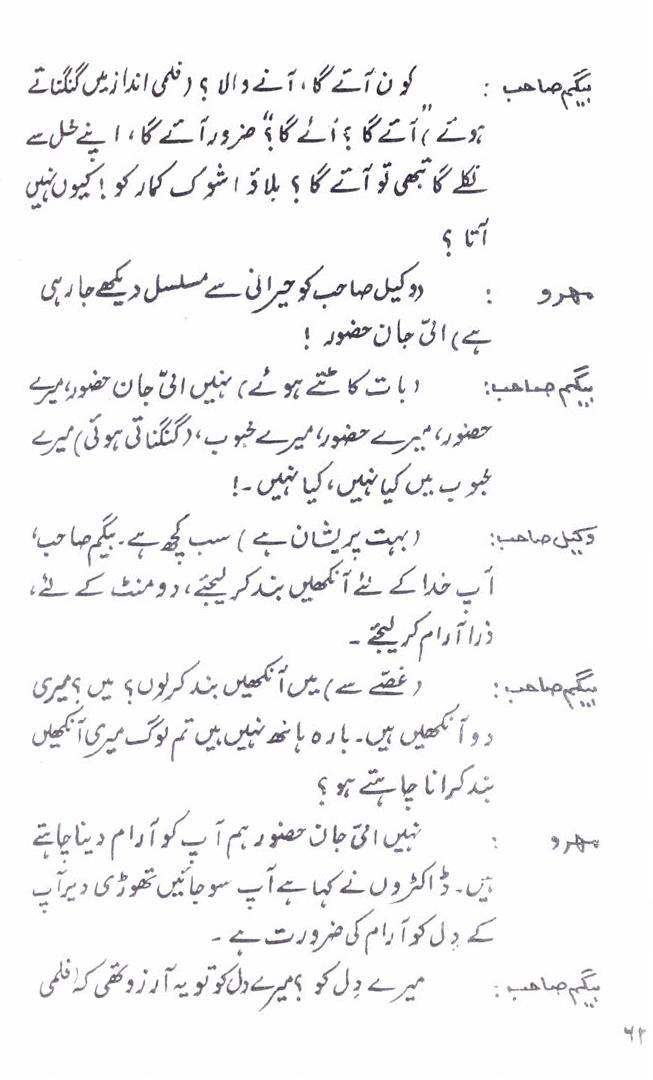 بیگم صاحب : کون آئے گا، آنے والا ؟ (فلمی انداز میں گنگناتے
ہوئے) "آئے گا ؟ آئے گا؟" ضرور آئے گا، اپنے محل سے
نکلے گا تبھی تو آئے گا ؟ بلاؤ اشوک کمار کو ! کیوں نہیں
آتا ؟
مہرو : (وکیل صاحب کو حیرانی سے مسلسل دیکھے جا رہی
ہے) امّی جان حضور !
بیگم صاحب: (بات کاٹتے ہوئے) نہیں امّی جان حضور، میرے
حضور، میرے حضور، میرے محبوب، (گنگناتی ہوئی) میرے
محبوب میں کیا نہیں، کیا نہیں ۔!
وکیل صاحب: (بہت پریشان ہے) سب کچھ ہے۔ بیگم صاحب،
آپ خدا کے لئے آنکھیں بند کر لیجئے، دو منٹ کے لئے،
ذرا آرام کر لیجئے ۔
بیگم صاحب : (غصّے سے) میں آنکھیں بند کر لوں؟ میں ؟ میری
دو آنکھیں ہیں۔ بارہ ہاتھ نہیں ہیں تم لوگ میری آنکھیں
بند کرانا چاہتے ہو ؟
مہرو : نہیں امّی جان حضور ہم آپ کو آرام دینا چاہتے
ہیں۔ ڈاکٹروں نے کہا ہے آپ سو جائیں تھوڑی دیر آپ
کے دِل کو آرام کی ضرورت ہے ۔
بیگم صاحب : میرے دِل کو ؟ میرے دل کو تو یہ آرزو تھی کہ (فلمی
۶۲